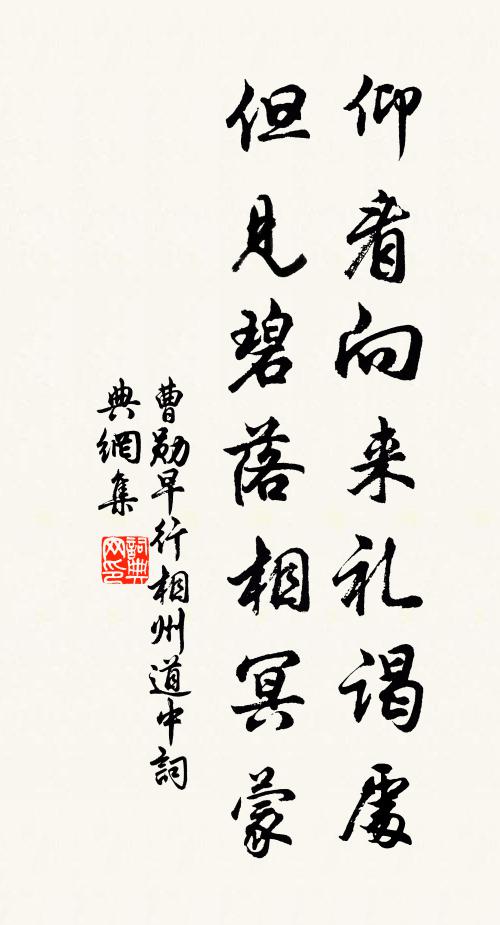 仰看向来礼谒处
但见碧落相冥蒙
曹勋早行相州道中詞
典網集
詞典
网印